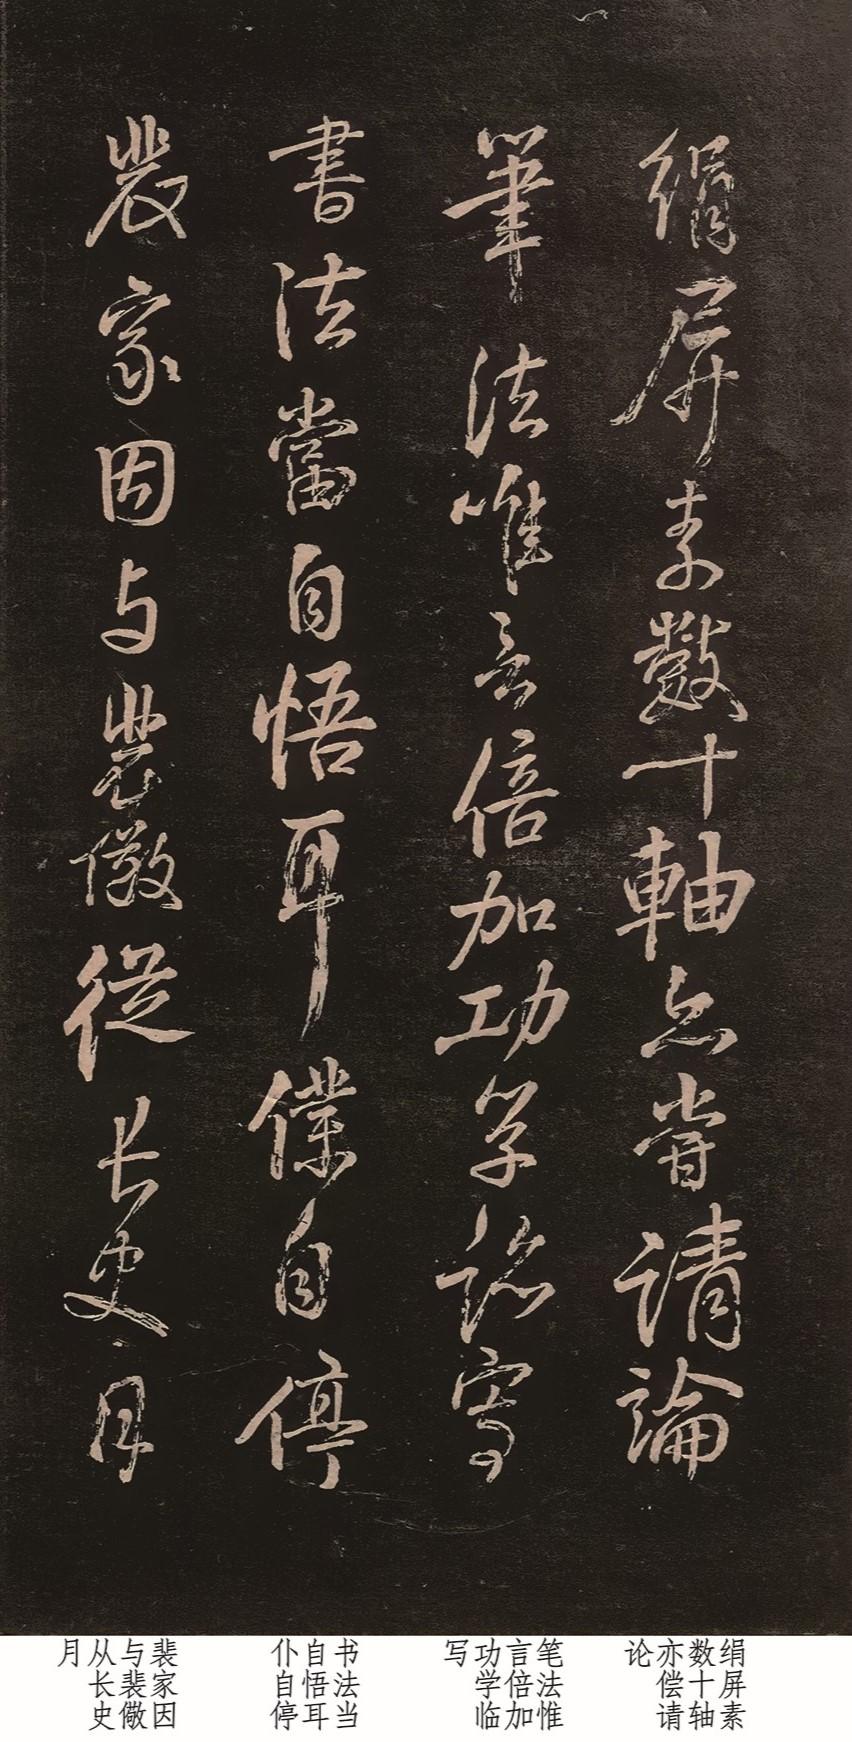 絹屏素數十軸亦嘗請論
筆法唯言倍加功學臨寫
書法當自悟耳僕自停
裴家因与裴儆從長史月
绢屏素
数十轴
亦偿请
论
笔法惟
言倍加
功学临
写
书法当
自悟耳
仆自停
裴家因
与裴儆
从长史
月